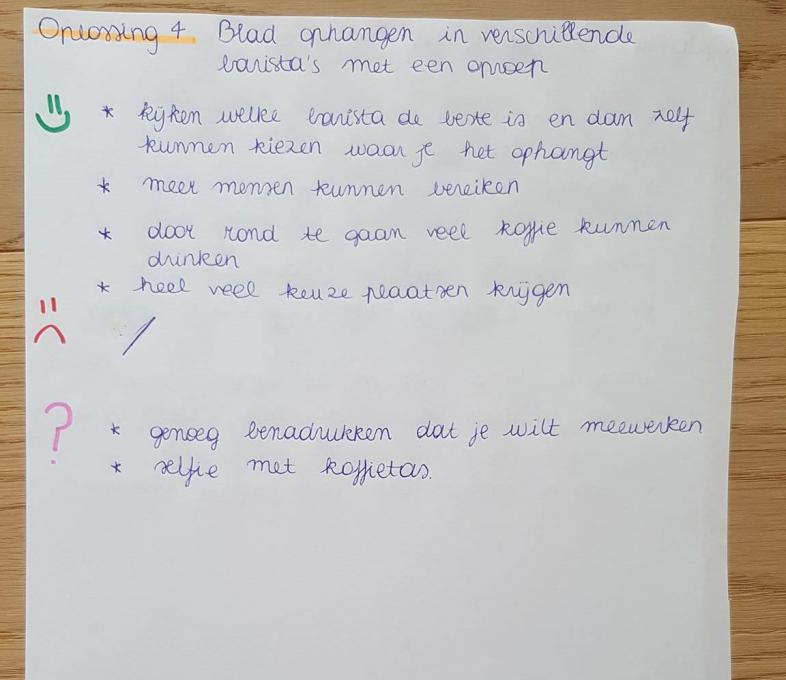 Oplossing 4 Blad ophangen in verschillende
barista's met een oproep
* kijken welke barista de beste is en dan zelf
kunnen kiezen waar je het ophangt
* meer mensen kunnen bereiken
* door rond te gaan veel koffie kunnen
drinken
* heel veel keuze plaatsen krijgen
/
? * genoeg benadrukken dat je wilt meewerken
* selfie met koffietas.